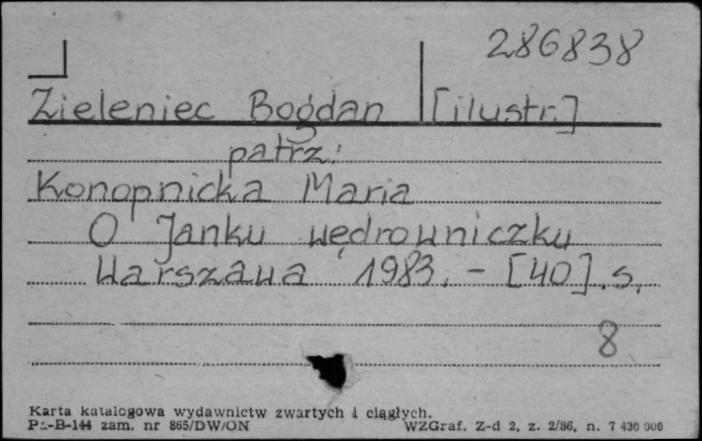 286838
Zieleniec Bogdan [ilustr.]
patrz:
Konopnicka Maria
O Janku wędrowniczku
Warszawa 1983. - [40] s.
8
Karta katalogowa wydawnictw zwartych i ciągłych.
Pu-B-144 zam. nr 865/DW/ON WZGraf. Z-d 2, z. 2/86, n. 7 430 000